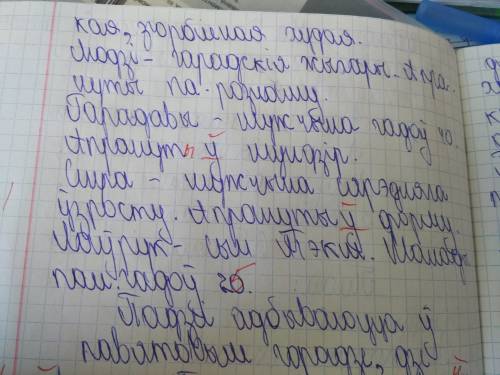 кая, згорбленая худая.
Людзі - гарадскія жыхары. Апра-
нуты па-рознаму.
Гарадавы - мужчына гадоў 40.
Апрануты ў мундзір.
Шпа - мужчына сярэдняга
ўзросту. Апрануты ў форму.
Лаўрук - сын Тэклі. Малады
пан. гадоў 25.
Падзеі адбываюцца ў
павятовым горадзе, дзе